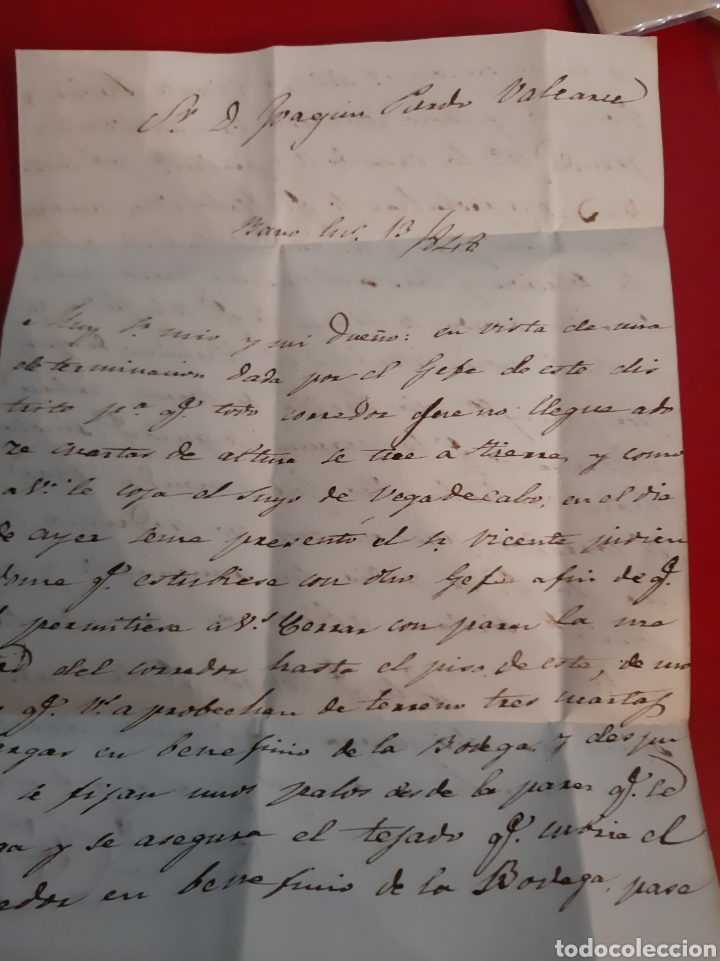 Sr. D. Joaquin Pardo Valcarce
Barco 13/848
Muy Sr. mio y mi dueño: en vista de una
determinacion dada por el Gefe de este dis
trito pa. qe. todo corredor que no llegue ado
ze cuartas de altura se tire a tierra, y como
a Vs. le coja el suyo de Vegadecabo, en el dia
de ayer seme presentó el Sr. Vicente pidien
dome qe. estubiese con dho Gefe afin de qe.
permitiera a Vs. Cerrar con pared la mi
tad del corredor hasta el piso de este, de mo
qe. Vs. aprobechan de terreno tres cuartas
en beneficio de la Bodega, y despu
se fijan unos palos desde la pared qe. se
y se asegura el tejado qe. cubria el
edor en beneficio de la Bodega, pase
todocoleccion